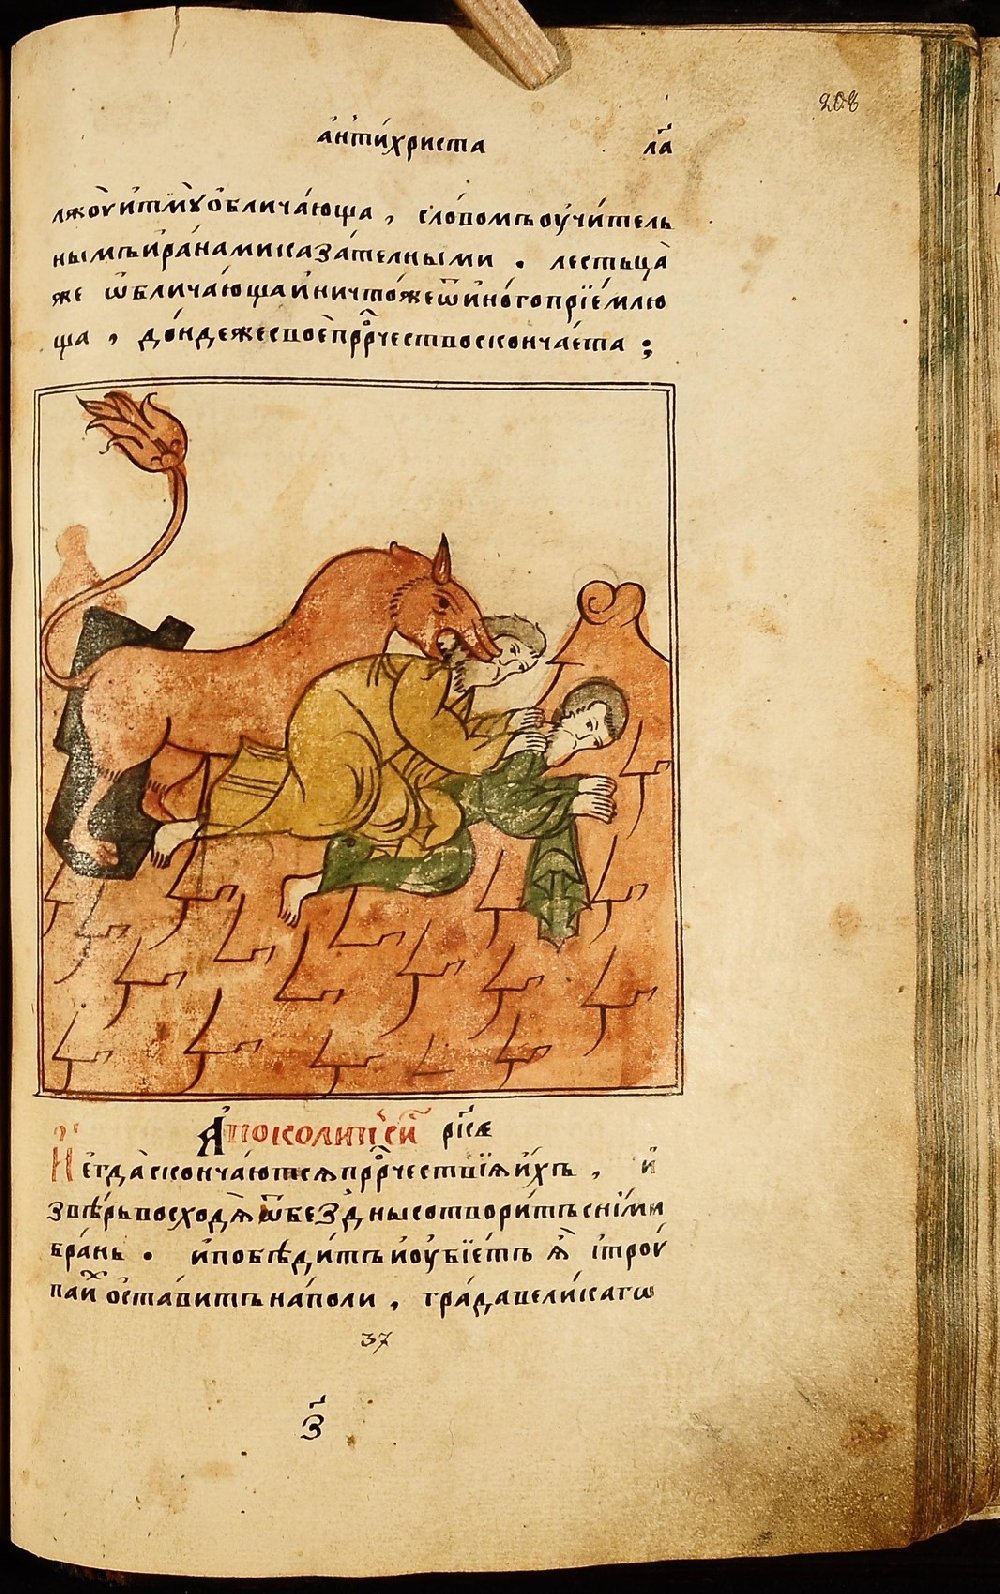 208
антихриста л҃а
лжоу̀ и҆тмꙋ̀ о҆блича́юща , сло́вомъ оу҆чи́тель
нымъ и҆ра́нами каза́телными . лестьца̀
же ѡ҆блича́юща и҆ничто́же ѿ и҆но́го прїе́млю
ща , до́ндеже своѐ прⷪ҇рчество сконча́ета ;
А҆поколипⷭ҇и рк҃є
И҆ егда̀ сконча́ютсѧ прⷪ҇рчествїѧ и҆́хъ , и҆
звѣ́рь восходѧ̀ ѿ бездны сотвори́тъ сни́ми
бра́нь . и҆ побѣди́тъ и҆ оу҆бїе́тъ ѧ҆̀ і҆ трꙋ
па и҆́х оста́витъ на́поли , гра́да вели́кагѡ
37
з҃